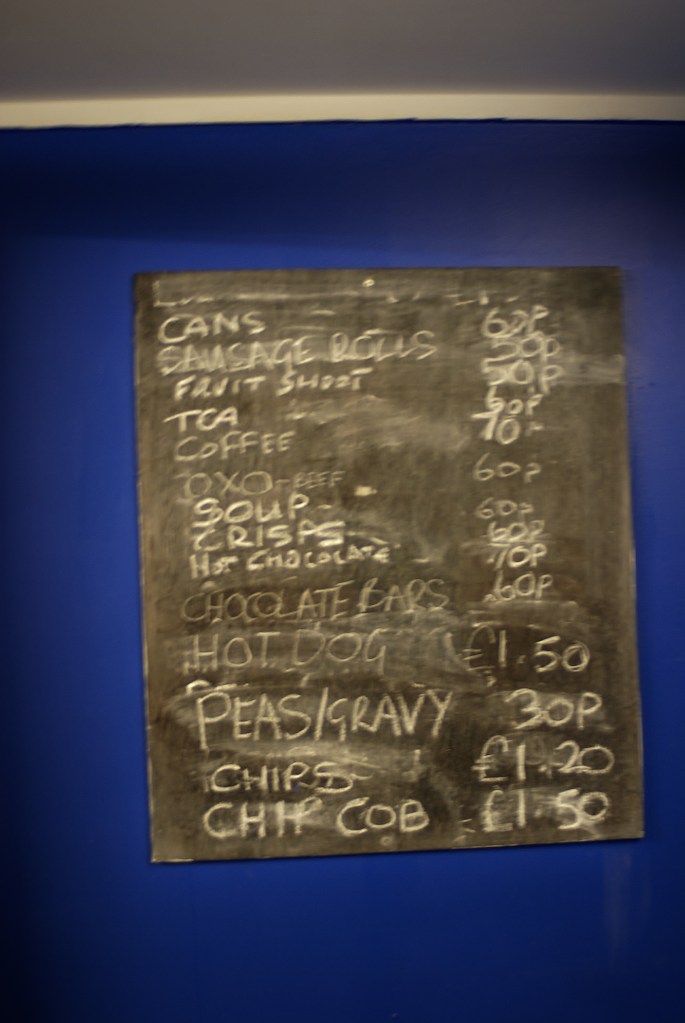 CANS 60P
SAUSAGE ROLLS 50P
FRUIT SHOOT 50P
TEA 60P
COFFEE 70P
OXO-BEEF 60P
SOUP 60P
CRISPS 60P
HOT CHOCOLATE 70P
CHOCOLATE BARS 60P
HOT DOG £1.50
PEAS/GRAVY 30P
CHIPS £1.20
CHIP COB £1.50